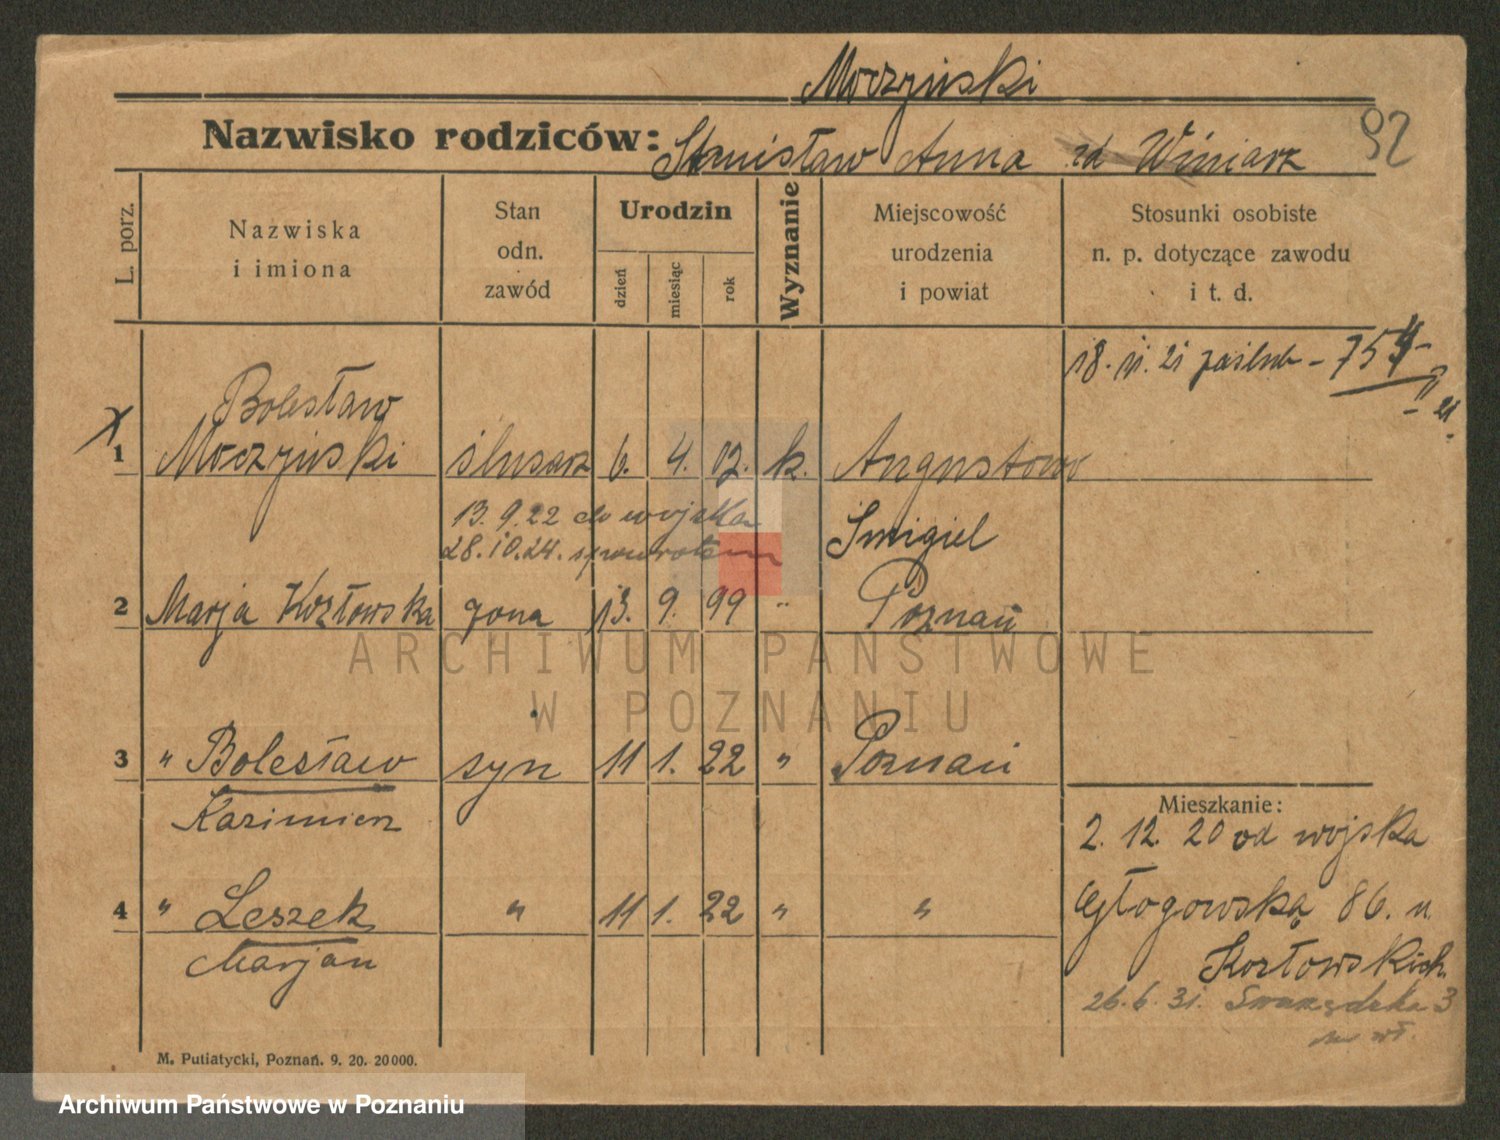 Moczyński
Nazwisko rodziców: Stanisław Anna zd Winiarz 92
L. porz.
Nazwiska
i imiona
Stan
odn.
zawód
Urodzin
dzień
miesiąc
rok
Wyznanie
Miejscowość
urodzenia
i powiat
Stosunki osobiste
n. p. dotyczące zawodu
i t. d.
18. 21 zaślub -
Bolesław
1 Moczyński ślusarz 6. 4. 02. k. Augustowo
13.9.22 do wojska Śmigiel
28.10.24. z powrotem
2 Marja Kozłowska żona 13. 9. 99 " Poznań
ARCHIWUM PAŃSTWOWE
W POZNANIU
3 " Bolesław syn 11 1. 22 " Poznań
Kazimierz
Mieszkanie:
2. 12. 20 od wojska
4 " Leszek " 11 1. 22 " "
Marjan
Głogowska 86. u
Kozłowskich.
26.6.31. 3
M. Putiatycki, Poznań. 9. 20. 20000.
Archiwum Państwowe w Poznaniu